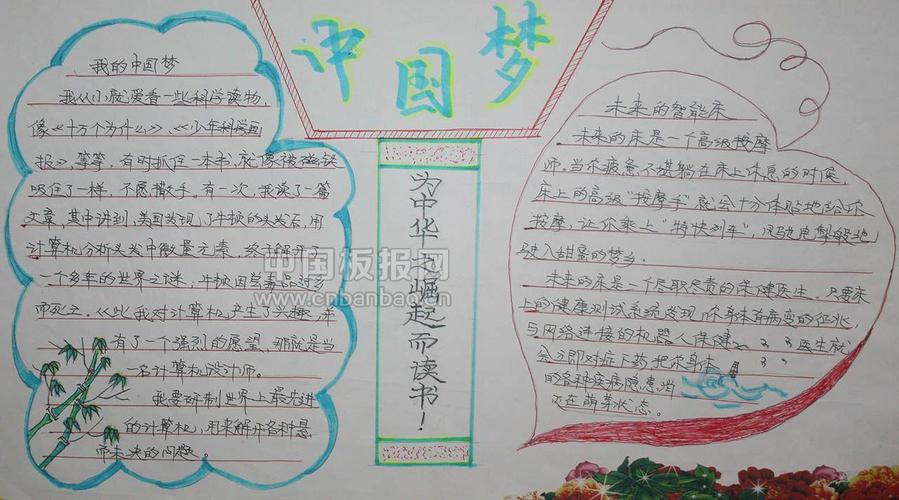 中国梦
我的中国梦
我从小就爱看一些科学读物,
像《十万个为什么》、《少年科学画
报》等等,有时抓住一本书,就像被磁铁
吸住了一样,不愿撒手。有一次,我读了一篇
文章,其中讲到,美国发现了牛顿的头发后,用
计算机分析头发中微量元素,终于解开了
一个多年的世界之谜,牛顿因
而死亡。从此我对计算机产生了兴趣,
有了一个强烈的愿望,那就是当
一名计算机设计师。
我要研制世界上最先进
的计算机,用来解开各种悬
而未决的问题。
为中华之崛起而读书!
未来的智能床
未来的床是一个高级按摩
师。当你疲惫不堪躺在床上休息的时候,
床上的高级“按摩手”就会十分体贴地给你
按摩,让你乘上“特快列车”,风驰电掣般地
驶入甜蜜的梦乡。
未来的床是一个尽职尽责的保健医生。只要床
上的健康测试系统发现你身体有病变的征兆,
与网络连接的机器人保健医生就
会立即对症下药把你身体
的各种疾病隐患消
灭在萌芽状态。
中国板报网
www.cnbanbao.cn